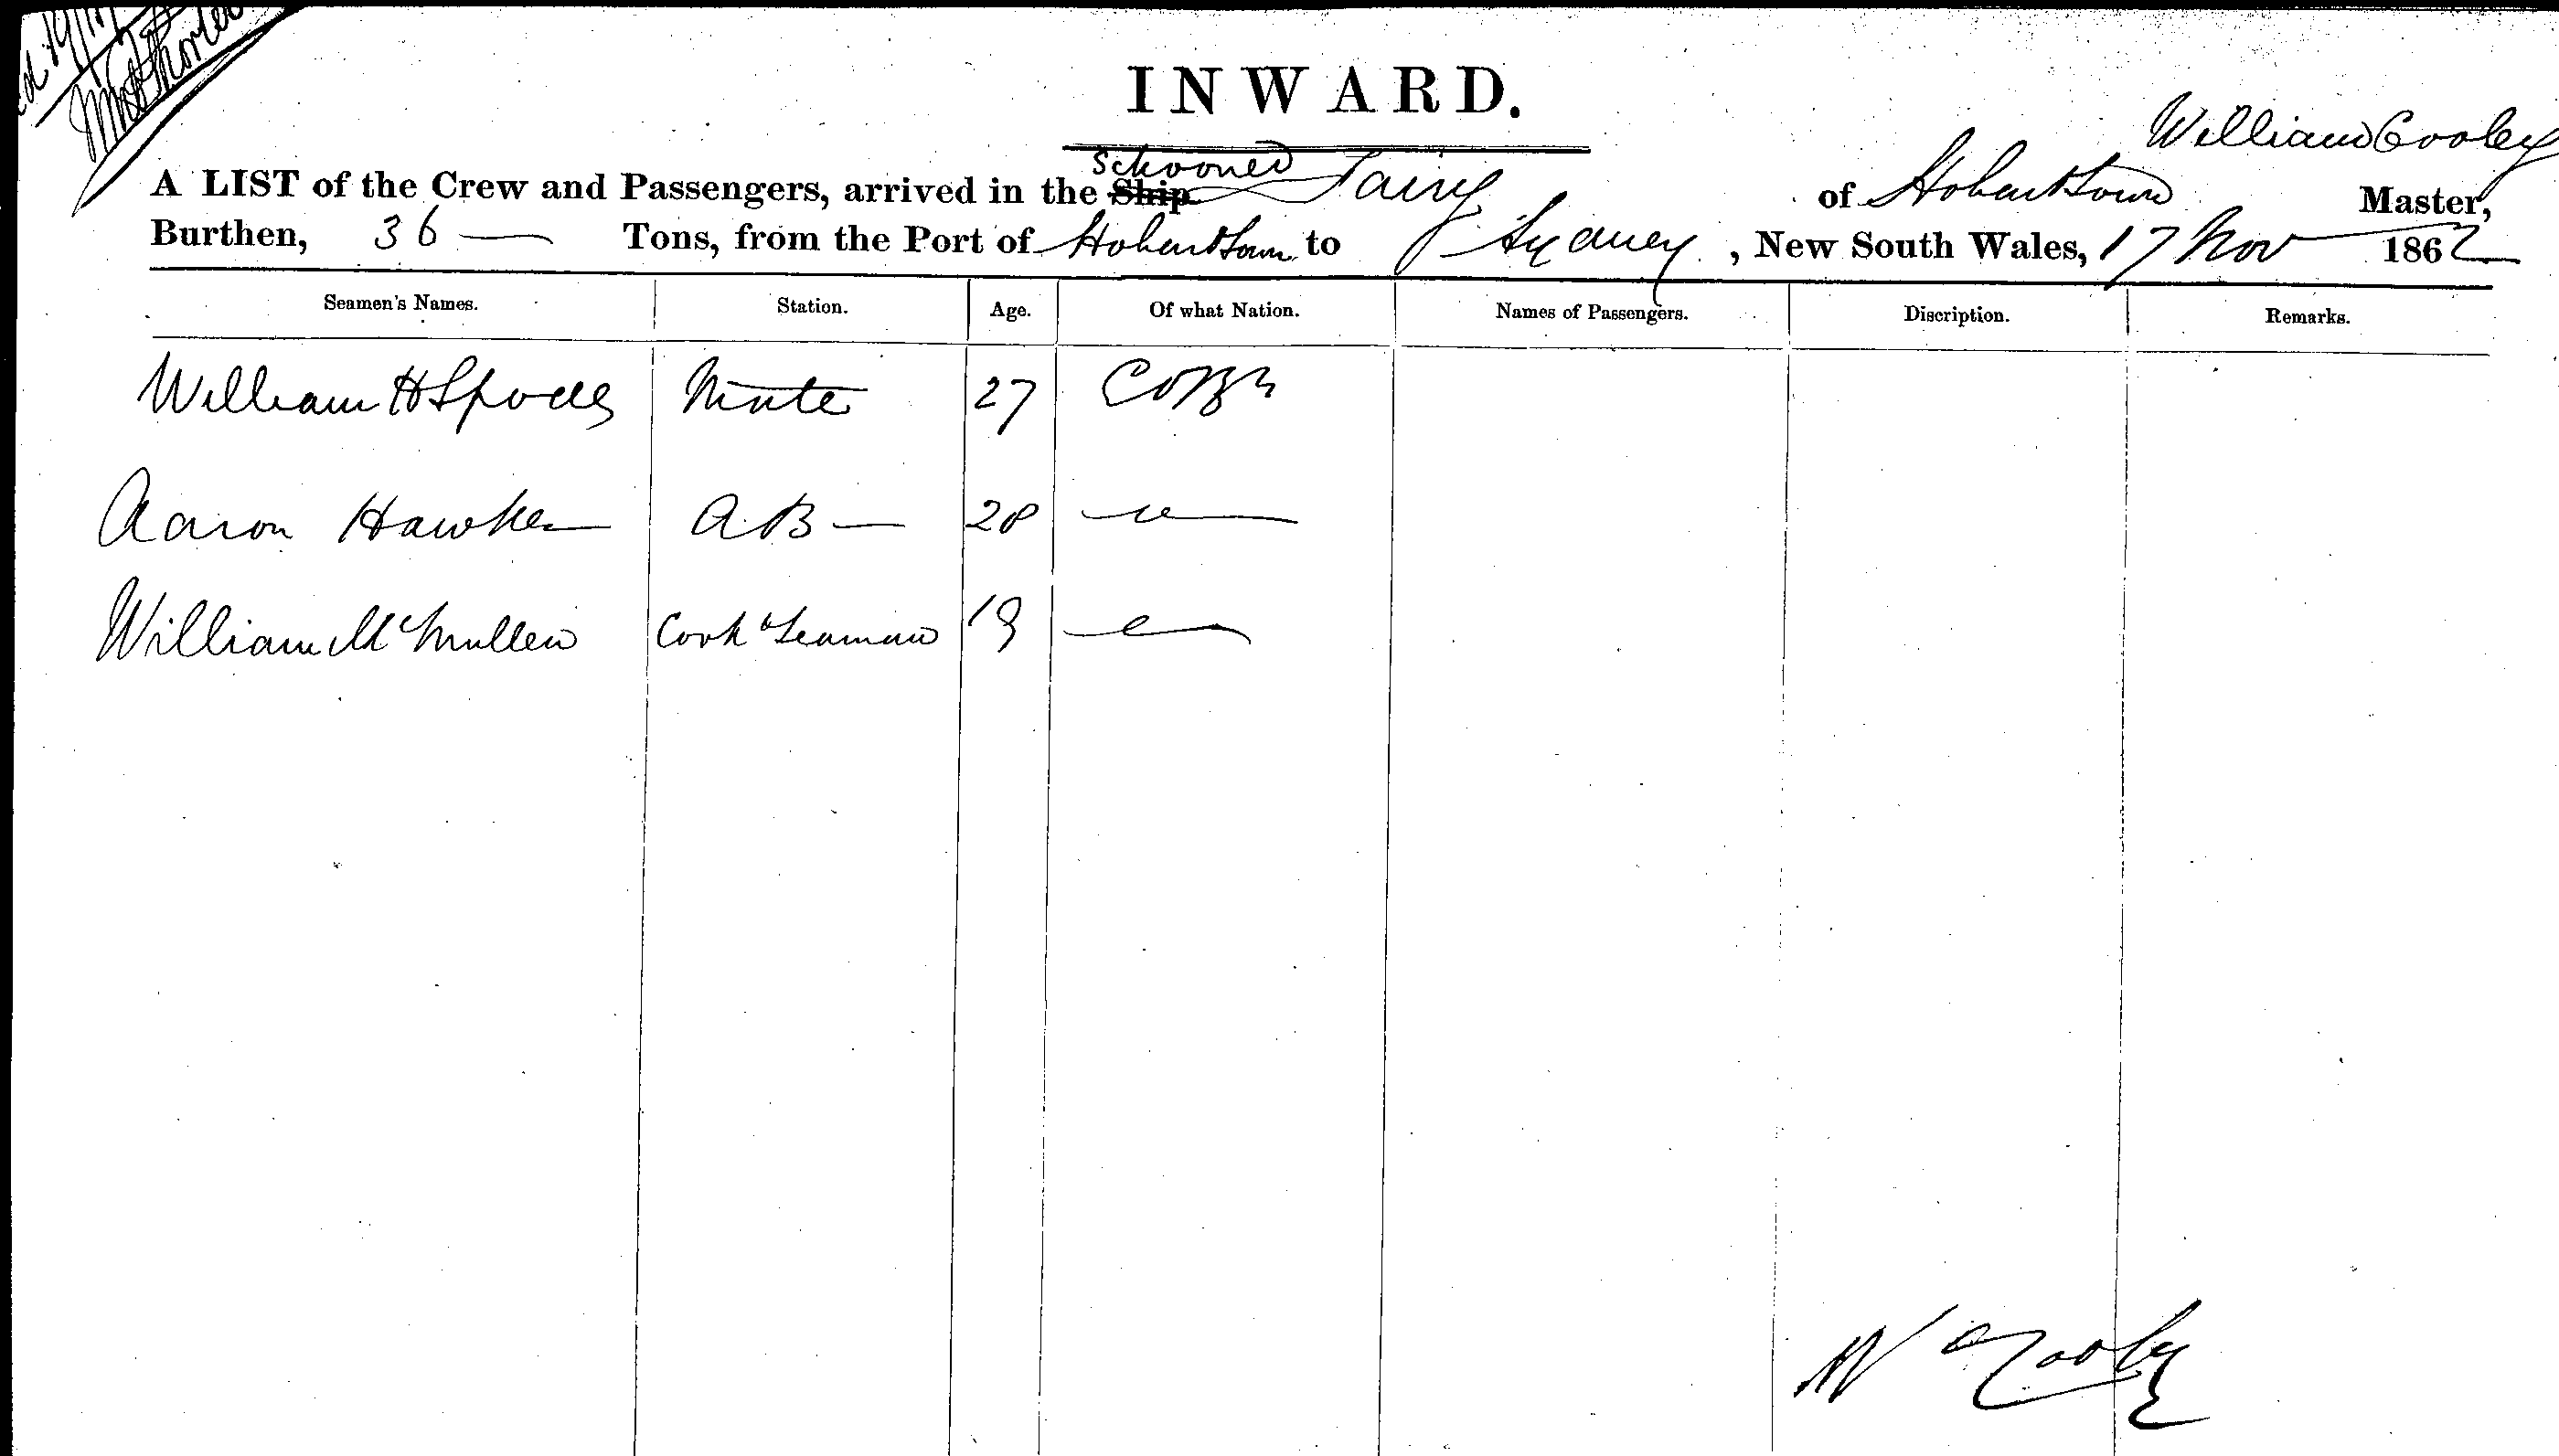 INWARD.
William Cooley
Schooner
A LIST of the Crew and Passengers, arrived in the Ship Fairy of Hobart Town Master,
Burthen, 36 — Tons, from the Port of Hobart Town to Sydney, New South Wales, 17 Nov 1862
Seamen's Names. Station. Age. Of what Nation. Names of Passengers. Discription. Remarks.
William H Mate 27
Aaron Hawken A.B — 28
William McMullen Cook & Seaman 19
W Cooley